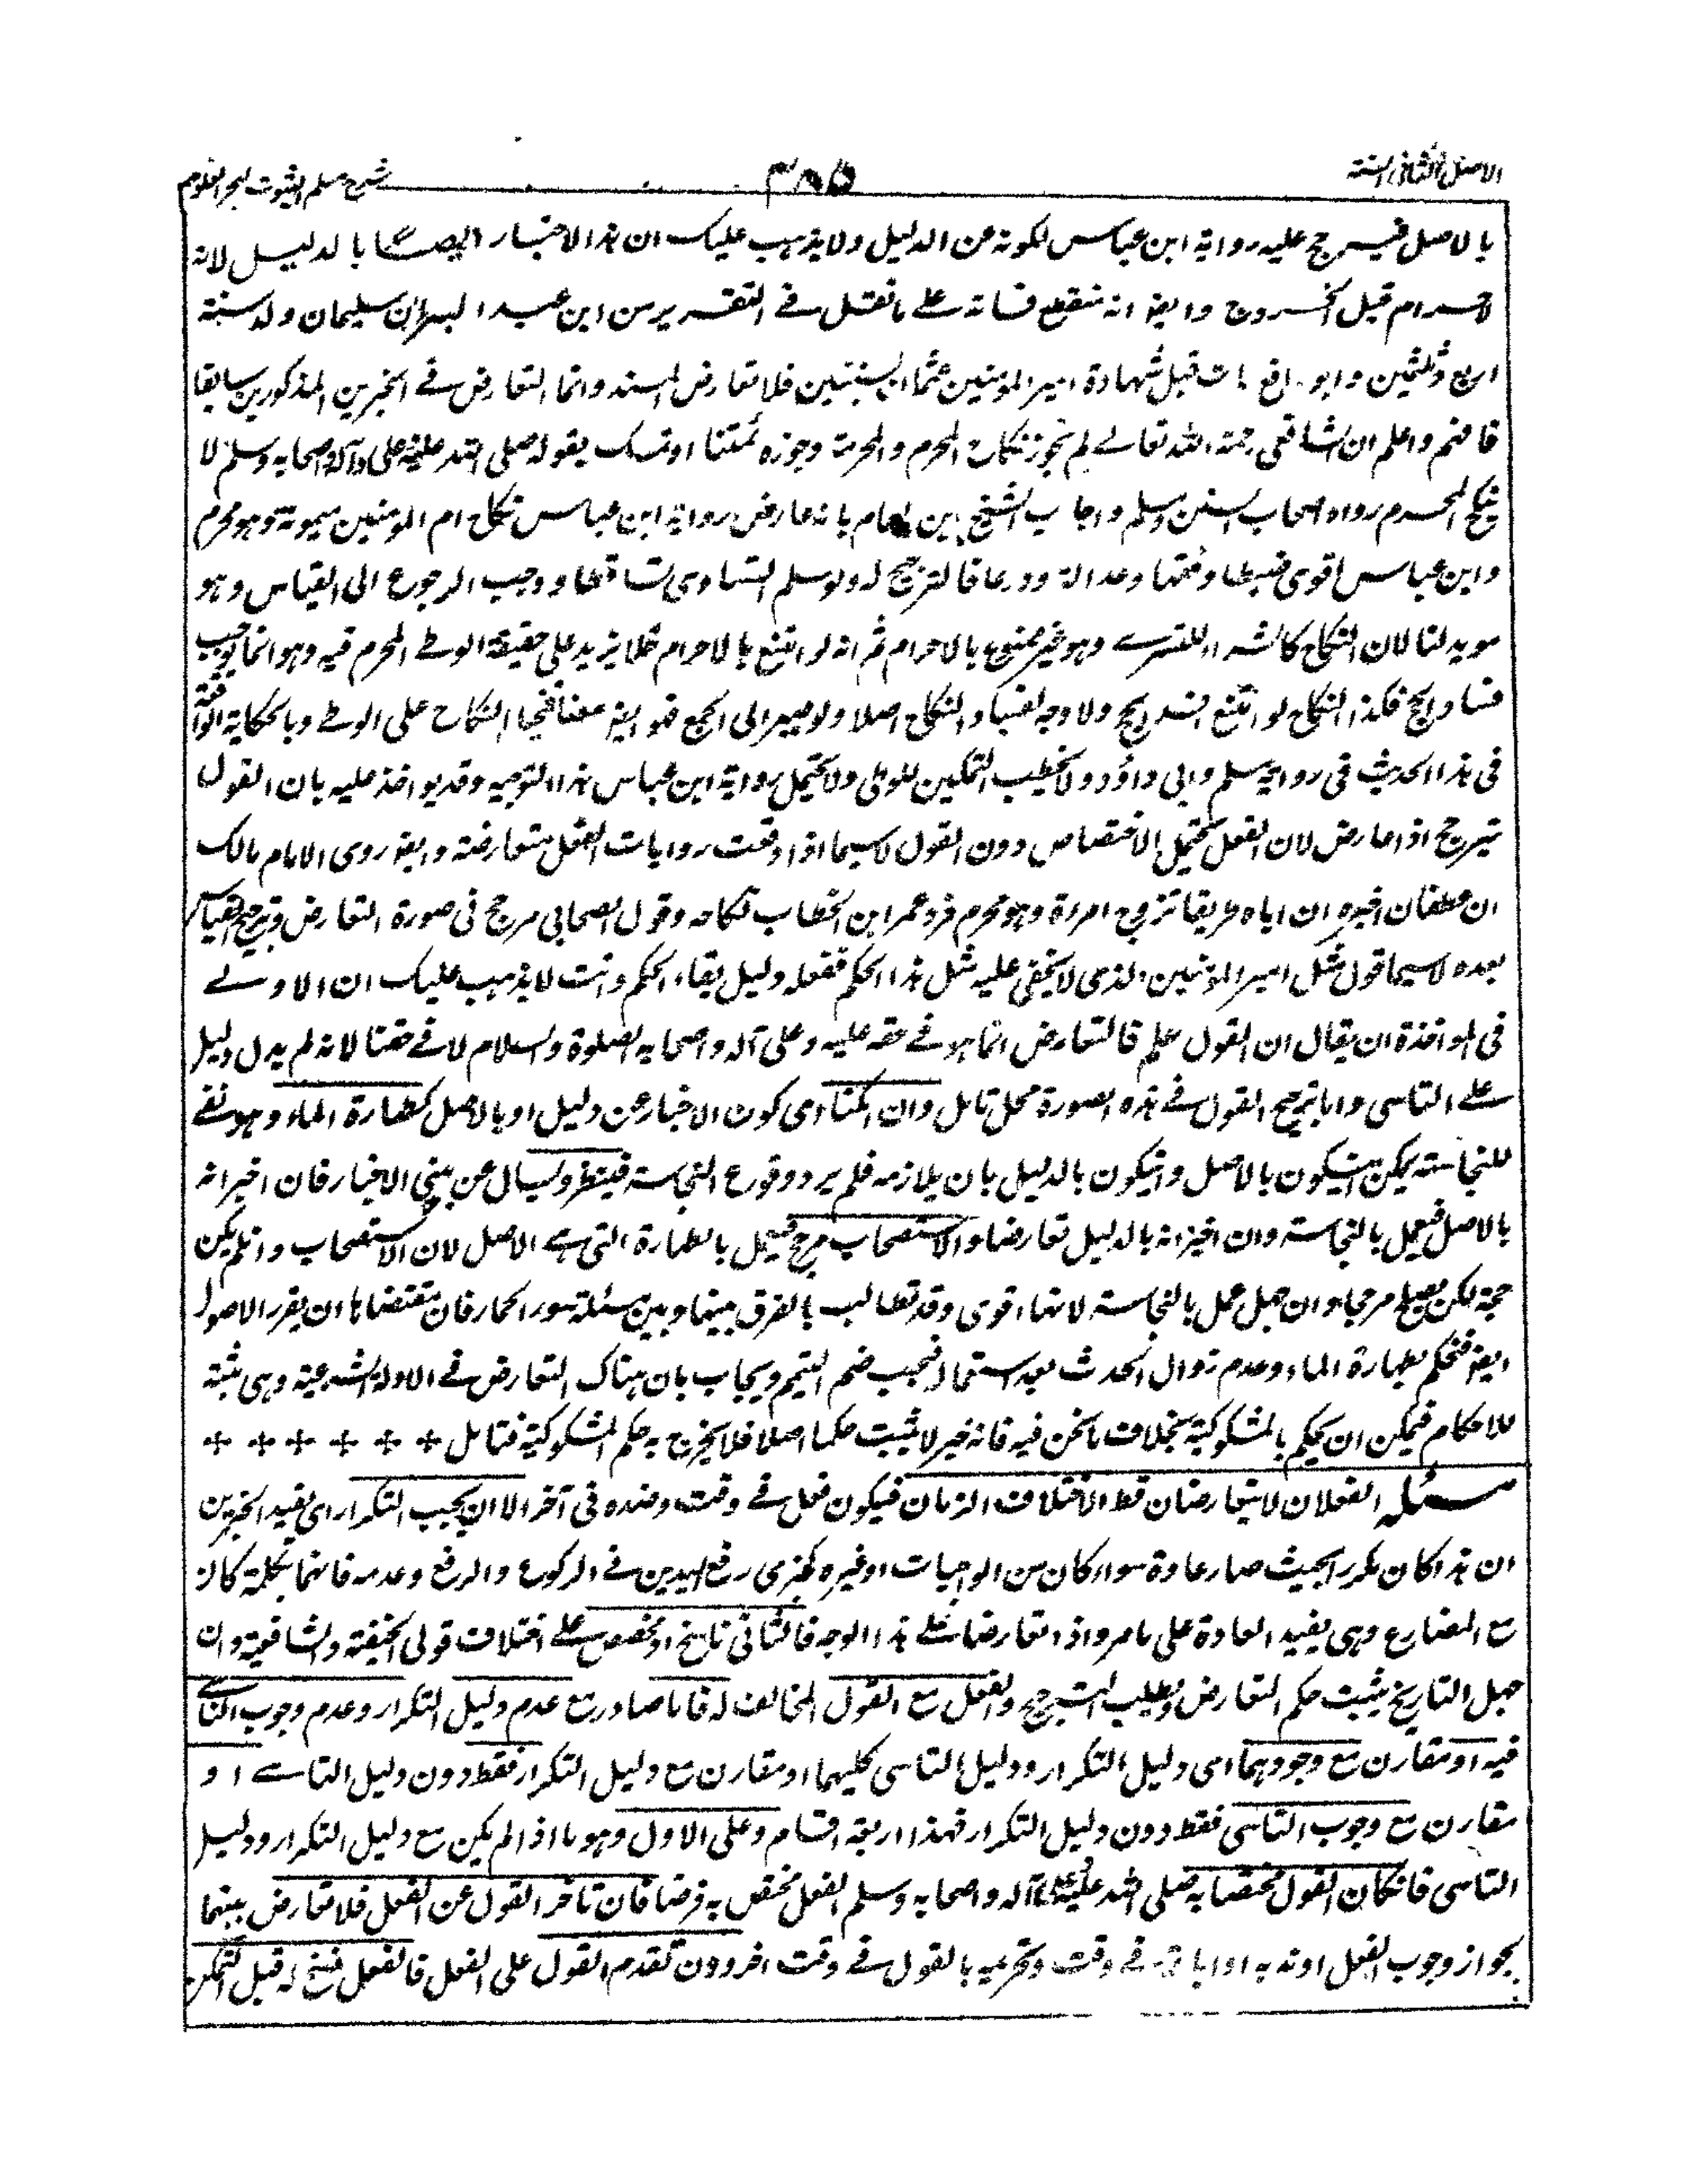 الاصل الثانی السنة
٣٨٥
شرح مسلم الثبوت لبحر العلوم
بالاصل فیرجح علیه روایة ابن عباس لکونه عن الدلیل ولا یذهب علیک ان هذا الاخبار ایضا بالدلیل لانه
لاحرام قبل الخروج وایضا انه منقطع فانه علی ما نقل فی التقریر من ابن عبد البر ان سلیمان ولد سنة
اربع وثلثین وابو رافع مات قبل شهادة امیر المؤمنین عثمان بسنتین فلا تعارض المسند وانما التعارض فی الخبرین المذکورین سابقا
فافهم واعلم ان الشافعی رحمة الله تعالے لم یجوز نکاح المحرم والمحرمة وجوزه ائمتنا او تمسک بقوله صلی الله علیه وعلی وآله واصحابه وسلم لا
ینکح المحرم رواه اصحاب السنن ومسلم واجاب الشیخ ابن الهمام بانه عارض روایة ابن عباس نکاح ام المومنین میمونة وهو محرم
وابن عباس اقوی ضبطا وفقها وعدالة وورعا فالترجیح له ولو سلم التساوی تساقطا ووجب الرجوع الی القیاس وهو
موید لنا لان النکاح کالشراء للتسرے وهو غیر ممنوع بالاحرام ثم انه لو امتنع بالاحرام فلا یزید علی حقیقة الوطے المحرم فیه وهو انما یوجب
فساد الحج فکذا النکاح لو امتنع افسد الحج ولا وجه لفساد النکاح اصلا ولو صیر الی الجمع فهو ایضا معنا فیحمل النکاح علی الوطے وبالحکایة الواقعة
فی هذا الحدیث فی روایة مسلم وابی داؤد ولا یخطب التمکین للوطی ولا یحتمل روایة ابن عباس هذا التوجیه وقد یواخذ علیه بان القول
یترجح اذا عارض لان الفعل یحتمل الاختصاص دون القول لا سیما اذا وقعت روایات الفعل متعارضة وایضا روی الامام مالک
ان غطفان اخبره ان اباه طریفا تزوج امرءة وهو محرم فرد عمر ابن الخطاب نکاحه وقول الصحابی مرجح فی صورة التعارض وترجیح القیاس
بعده لا سیما قول مثل امیر المؤمنین الذی لا یخفی علیه مثل هذا الحکم ففعله دلیل بقاء الحکم وانت لا یذهب علیک ان الاولے
فی المواخذة ان یقال ان القول علم فالتعارض انما هو فے حقه علیه وعلی آله واصحابه الصلوة والسلام لا فے حقنا لانه لم یدل دلیل
علے التاسی واما ترجیح القول فے هذه الصورة محل تامل وان امکنا ای کون الاخبار عن دلیل او بالاصل کطهارة الماء وهو نفے
للنجاسة یمکن ان یکون بالاصل وان یکون بالدلیل بان یلازمه فلم یر د وقوع النجاسة فینظر ویسال عن مبنی الاخبار فان اخبر انه
بالاصل فیعمل بالنجاسة وان اخبر انه بالدلیل تعارضا والاستصحاب مرجح فیعمل بالطهارة التی هے الاصل لان الاستصحاب وان لم یکن
حجة لکن یصلح مرجحا وان جهل عمل بالنجاسة لانها اقوی وقد تطالب بالفرق بینها وبین مسئلة سور الحمار فان مقتضاها ان یقرر الاصول
ایضا فیحکم بطهارة الماء وعدم زوال الحدث بعد استعماله فیجب ضم التیمم ویجاب بان هناک التعارض فے الادلة الشرعیة وهی مثبتة
للاحکام فیمکن ان یحکم بالمشکوکیة بخلاف ما نحن فیه فانه خبر لا یثبت حکما اصلا فلا یخرج به حکم المشکوکیة فتامل
مسئله الفعلان لا یتعارضان قط لاختلاف الزمان فیکون فعل فے وقت وضده فی آخر الا ان یجب التکرار ای یفید الخبرین
ان هذا کان مکررا بحیث صار عادة سواء کان من الواجبات او غیره کخبری رفع الیدین فے الرکوع والرفع وعدمه فانهما بکلمة کان
مع المضارع وهی یفید العادة علی ما مر واذا تعارضا علے هذا الوجه فالثانی ناسخ او مخصص علے اختلاف قولی الحنفیة والشافعیة وان
جهل التاریخ یثبت حکم التعارض ویطلب الترجیح والفعل مع القول المخالف له فاما صادر مع عدم دلیل التکرار وعدم وجوب التاسے
فیه او مقارن مع وجودهما ای دلیل التکرار ودلیل التاسی کلیهما او مقارن مع دلیل التکرار فقط دون دلیل التاسے او
مقارن مع وجوب التاسی فقط دون دلیل التکرار فهذا اربعة اقسام وعلی الاول وهو ما اذا لم یکن مع دلیل التکرار ودلیل
التاسی فان کان القول مختصا به صلی الله علیه وعلی آله واصحابه وسلم الفعل مختص به فرضا فان تاخر القول عن الفعل فلا تعارض بینهما
لجواز وجوب الفعل او ندبه او اباحته فے وقت وتحریمه بالقول فے وقت اخر وون تقدم القول علی الفعل فالفعل نسخ له قبل التمکن